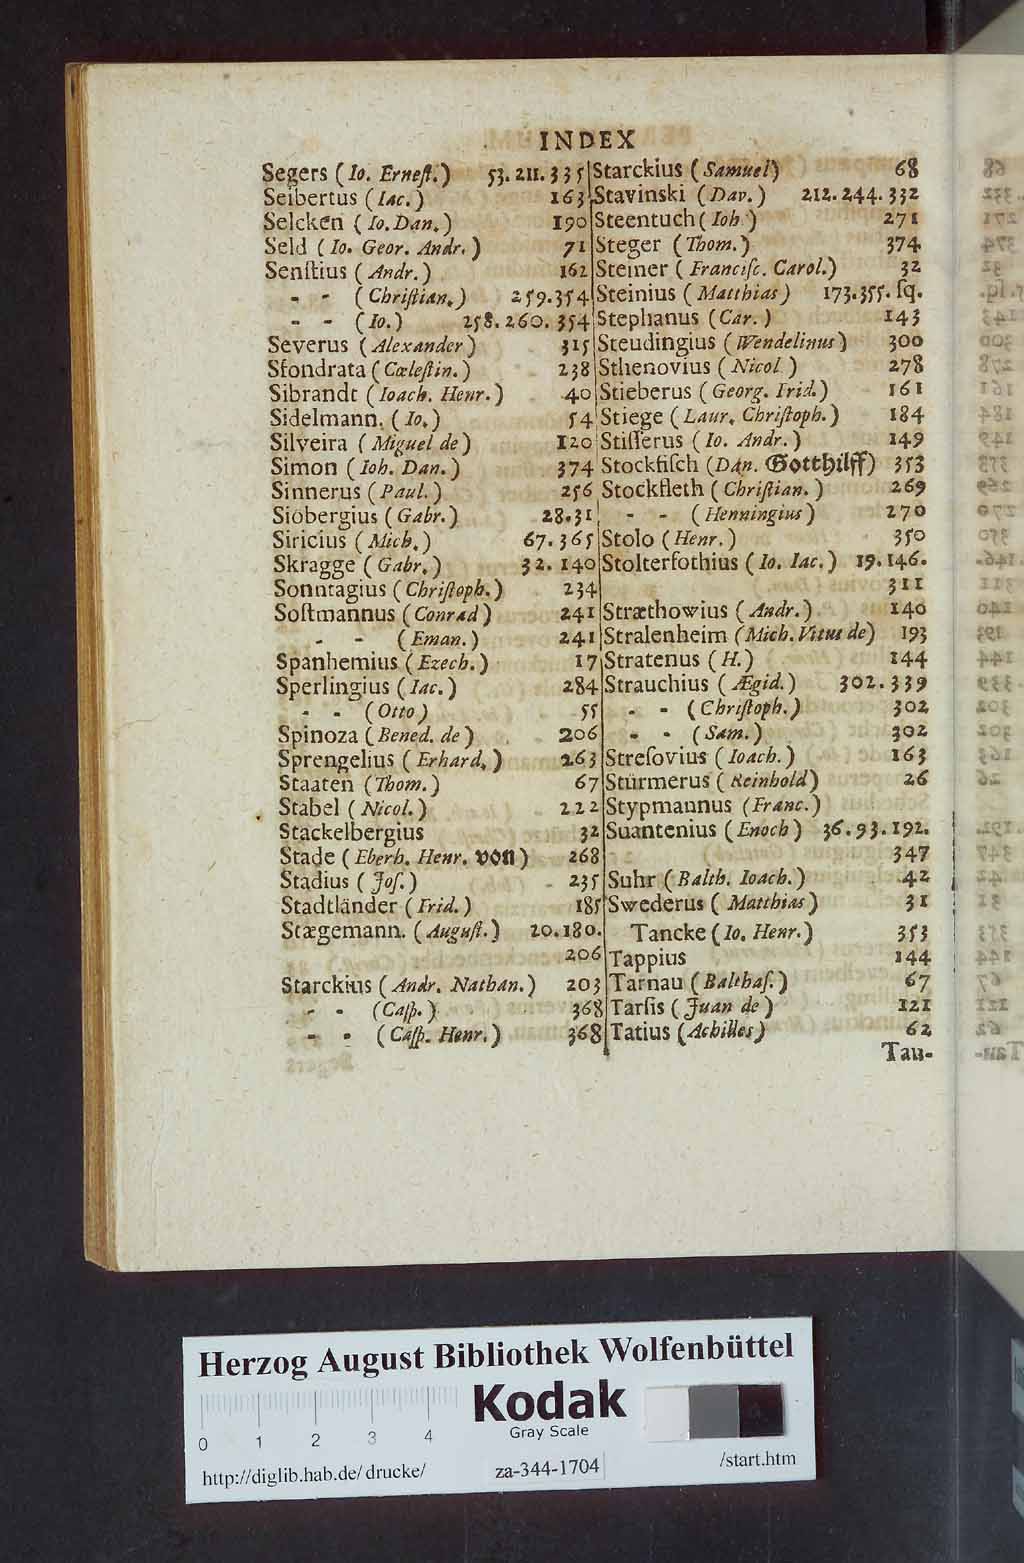 INDEX
Segers (Io. Erneſt.) 53. 211. 335
Seibertus (Iac.) 163
Selcken (Io. Dan.) 190
Seld (Io. Geor. Andr.) 71
Senſtius (Andr.) 162
- - (Chriſtian.) 259. 354
- - (Io.) 258. 260. 354
Severus (Alexander) 315
Sfondrata (Cœleſtin.) 238
Sibrandt (Ioach. Henr.) 40
Sidelmann. (Io.) 54
Silveira (Miguel de) 120
Simon (Ioh. Dan.) 374
Sinnerus (Paul.) 256
Siöbergius (Gabr.) 28. 31
Siricius (Mich.) 67. 365
Skragge (Gabr.) 32. 140
Sonntagius (Chriſtoph.) 234
Soſtmannus (Conrad) 241
- - (Eman.) 241
Spanhemius (Ezech.) 17
Sperlingius (Iac.) 284
- - (Otto) 55
Spinoza (Bened. de) 206
Sprengelius (Erhard.) 263
Staaten (Thom.) 67
Stabel (Nicol.) 222
Stackelbergius 32
Stade (Eberh. Henr. von) 268
Stadius (Joſ.) 235
Stadtländer (Frid.) 185
Stægemann. (Auguſt.) 20. 180.
206
Starckius (Andr. Nathan.) 203
- - (Caſp.) 368
- - (Caſp. Henr.) 368
Starckius (Samuel) 68
Stavinski (Dav.) 212. 244. 332
Steentuch (Ioh.) 271
Steger (Thom.) 374
Steiner (Franciſc. Carol.) 32
Steinius (Matthias) 173. 355. ſq.
Stephanus (Car.) 143
Steudingius (Wendelinus) 300
Sthenovius (Nicol.) 278
Stieberus (Georg. Frid.) 161
Stiege (Laur. Chriſtoph.) 184
Stiſſerus (Io. Andr.) 149
Stockfiſch (Dan. Gotthilff) 353
Stockfleth (Chriſtian.) 269
- - (Henningius) 270
Stolo (Henr.) 350
Stolterfothius (Io. Iac.) 19. 146.
311
Stræthowius (Andr.) 140
Stralenheim (Mich. Vitus de) 193
Stratenus (H.) 144
Strauchius (Ægid.) 302. 339
- - (Chriſtoph.) 302
- - (Sam.) 302
Streſovius (Ioach.) 163
Stürmerus (Reinhold) 26
Stypmannus (Franc.)
Suantenius (Enoch) 36. 93. 192.
347
Suhr (Balth. Ioach.) 42
Swederus (Matthias) 31
Tancke (Io. Henr.) 353
Tappius 144
Tarnau (Balthaſ.) 67
Tarſis (Juan de) 121
Tatius (Achilles) 62
Tau-
Herzog August Bibliothek Wolfenbüttel
Kodak
Gray Scale
0 1 2 3 4
http://diglib.hab.de/drucke/ za-344-1704 /start.htm